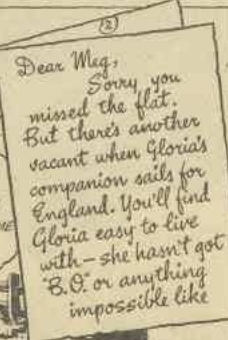 2
Dear Meg,
Sorry you
missed the flat.
But there's another
vacant when Gloria's
companion sails for
England. You'll find
Gloria easy to live
with — she hasn't got
"B.O." or anything
impossible like